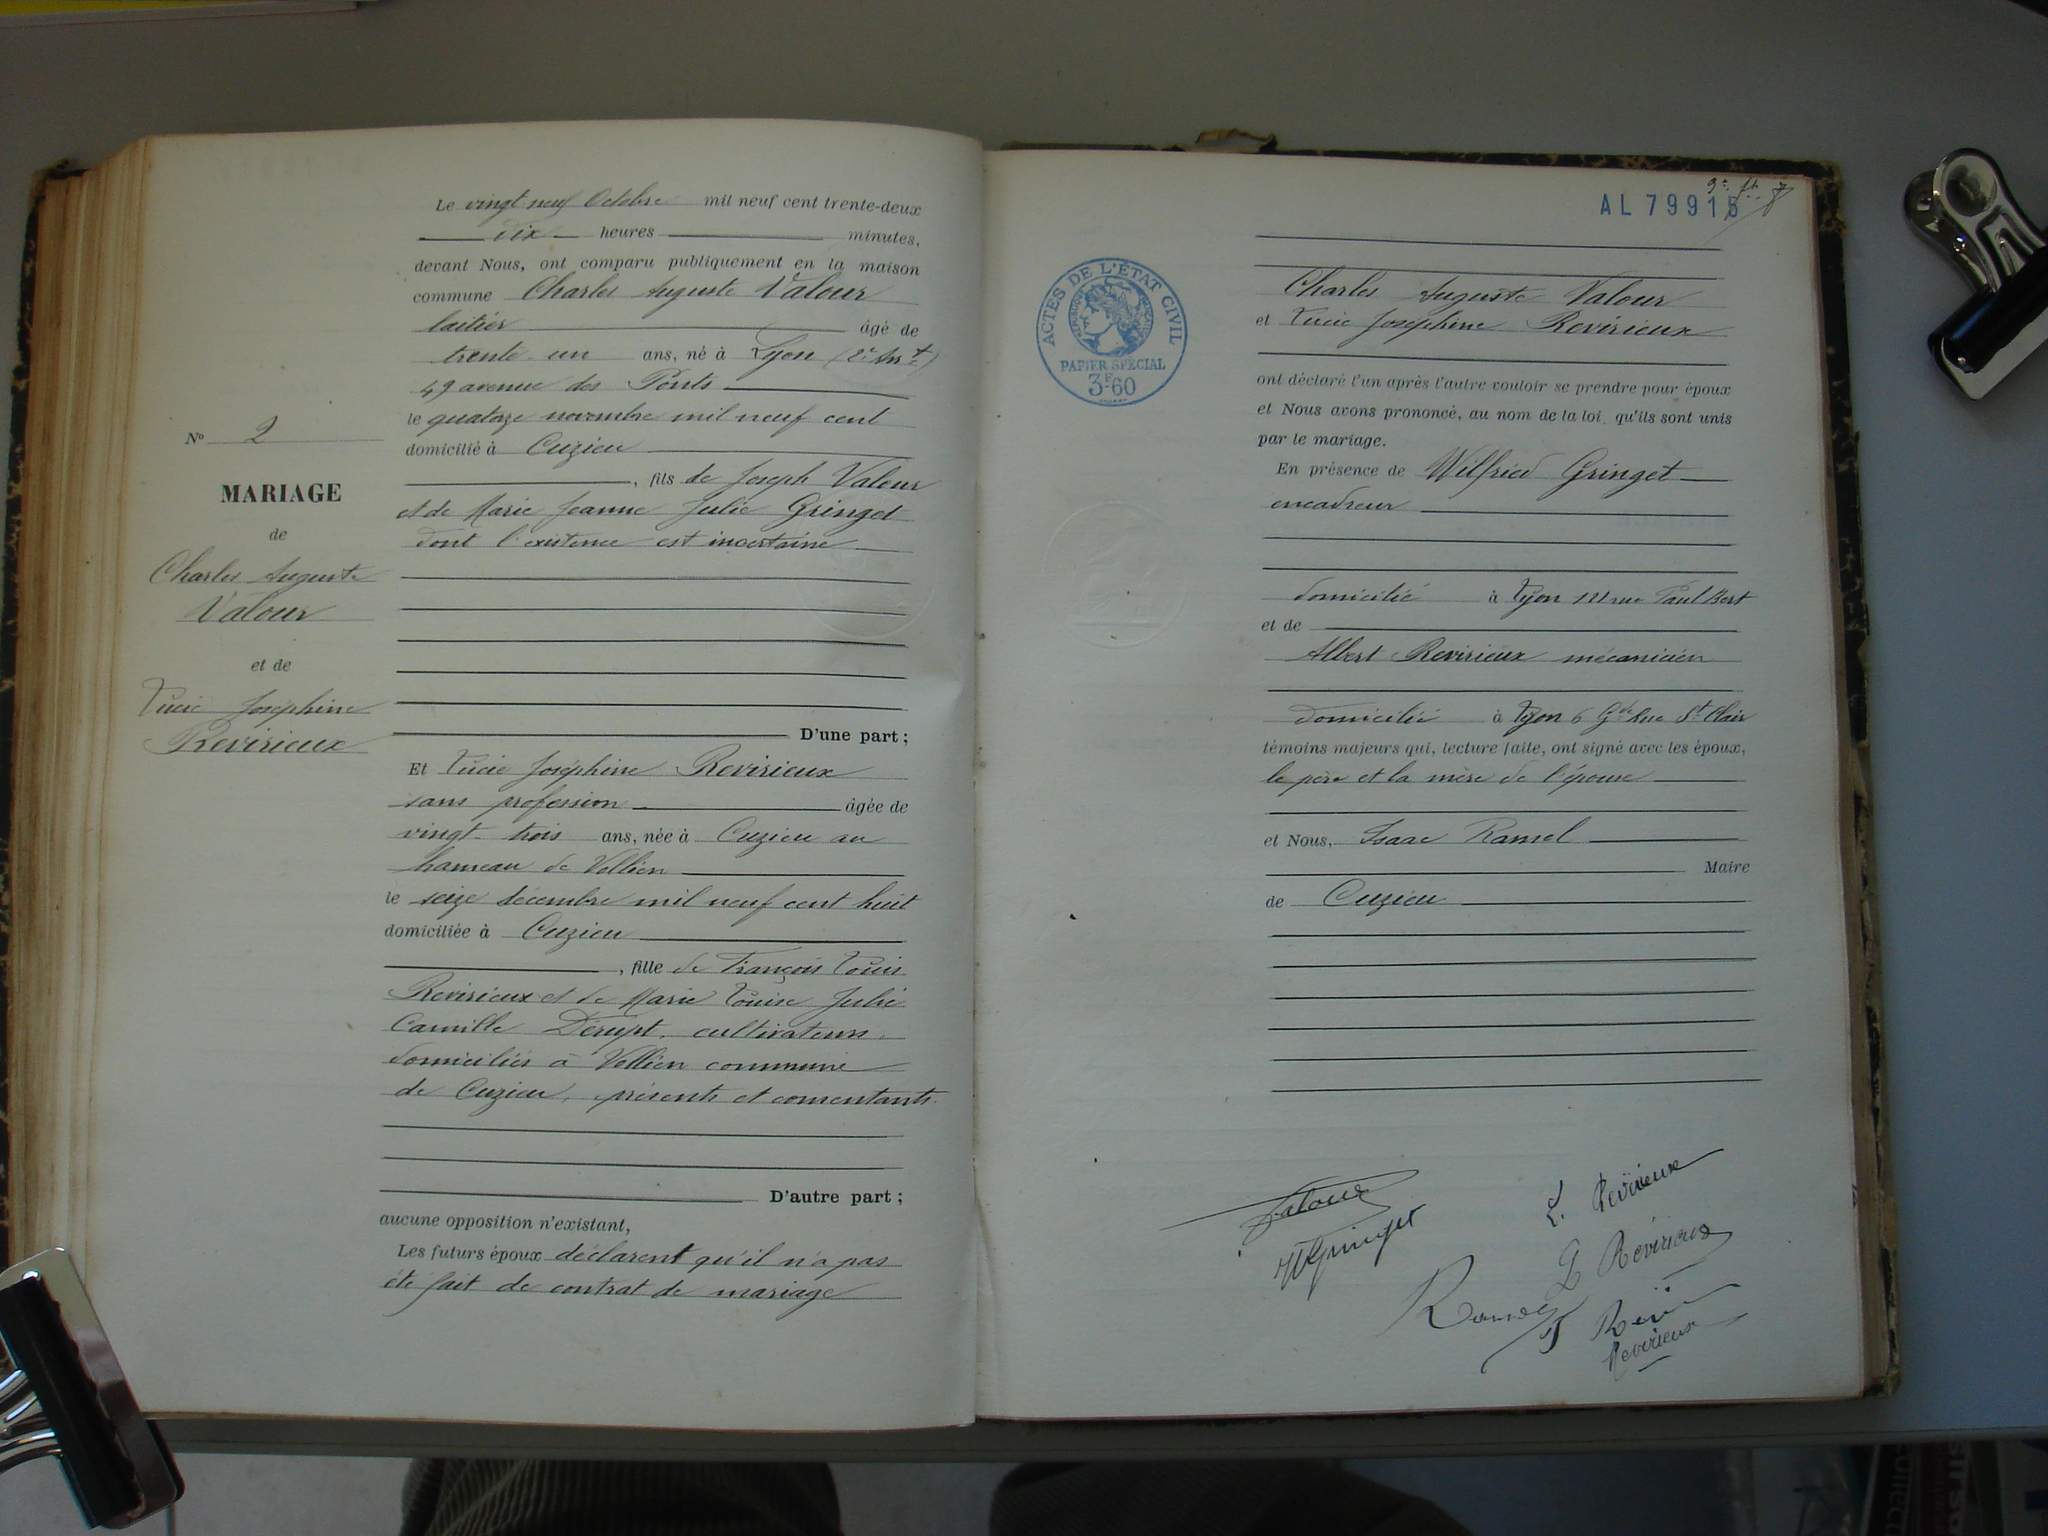 Le vingt-neuf Octobre mil neuf cent trente-deux
dix heures minutes,
devant Nous, ont comparu publiquement en la maison
commune Charles Auguste Valour
laitier âgé de
trente un ans, né à Lyon (2e Arrt)
49 avenue des Ponts
le quatorze novembre mil neuf cent
domicilié à Cuzieu
, fils de Joseph Valour
et de Marie Jeanne Julie Gringet
dont l'existence est incertaine
D'une part ;
No 2
MARIAGE
de
Charles Auguste
Valour
et de
Lucie Joséphine
Revirieux
Et Lucie Joséphine Revirieux
sans profession âgée de
vingt-trois ans, née à Cuzieu au
hameau de Vollien
le seize décembre mil neuf cent huit
domiciliée à Cuzieu
, fille de François Louis
Revirieux et de Marie Louise Julie
Camille Dérupt, cultivateurs,
domiciliés à Vollien commune
de Cuzieu, présents et consentants.
D'autre part ;
aucune opposition n'existant,
Les futurs époux déclarent qu'il n'a pas
été fait de contrat de mariage
AL 79915
ACTES DE L'ÉTAT CIVIL
PAPIER SPÉCIAL
3F60
Charles Auguste Valour
et Lucie Joséphine Revirieux
ont déclaré l'un après l'autre vouloir se prendre pour époux
et Nous avons prononcé, au nom de la loi, qu'ils sont unis
par le mariage.
En présence de Wilfried Gringet
encadreur
domicilié à Lyon 111 rue Paul Bert
et de
Albert Revirieux mécanicien
domicilié à Lyon 6 Gde Rue St Clair
témoins majeurs qui, lecture faite, ont signé avec les époux,
le père et la mère de l'épouse
et Nous, Isaac Ramel
Maire
de Cuzieu
Valour
L. Revirieux
W Gringet
L Revirieux
Ramel
Revirieux